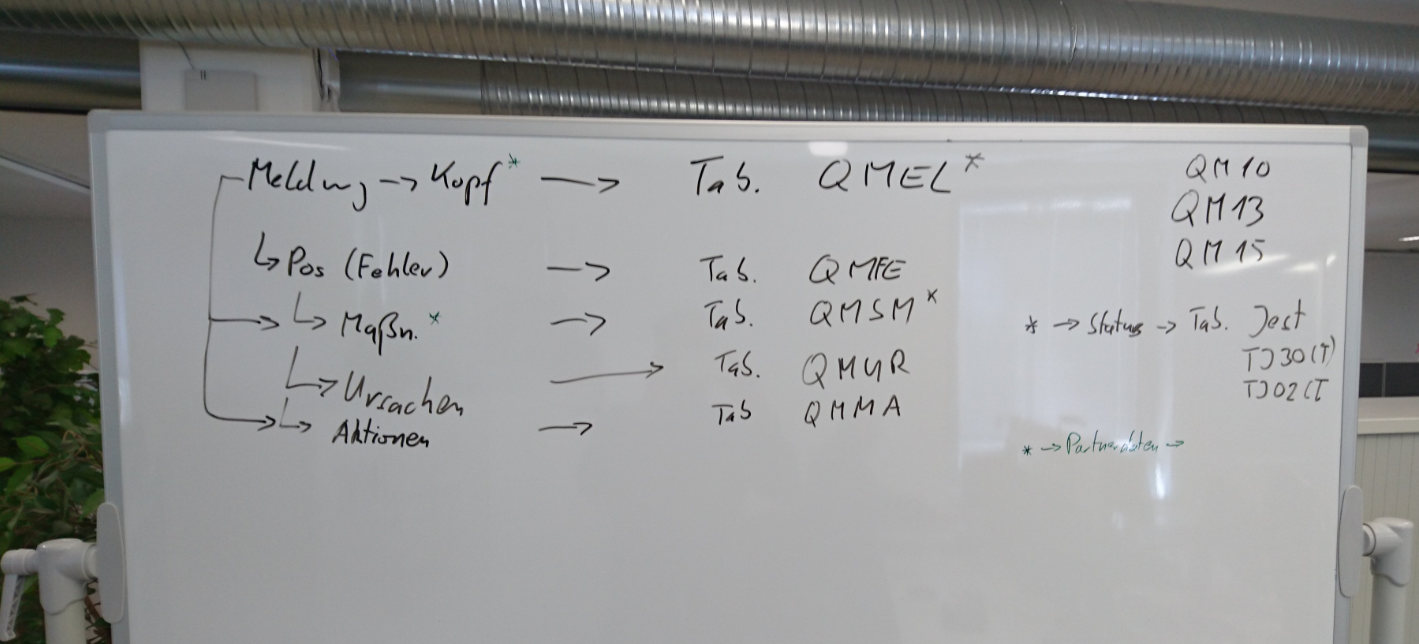 Meldung → Kopf* → Tab. QMEL*
↳ Pos (Fehler) → Tab. QMFE
↳ Maßn.* → Tab. QMSM*
↳ Ursachen → Tab. QMUR
↳ Aktionen → Tab QMMA
QM10
QM13
QM15
* → Status → Tab. Jest
TJ30(T)
TJ02(T
* → Partnerdaten →